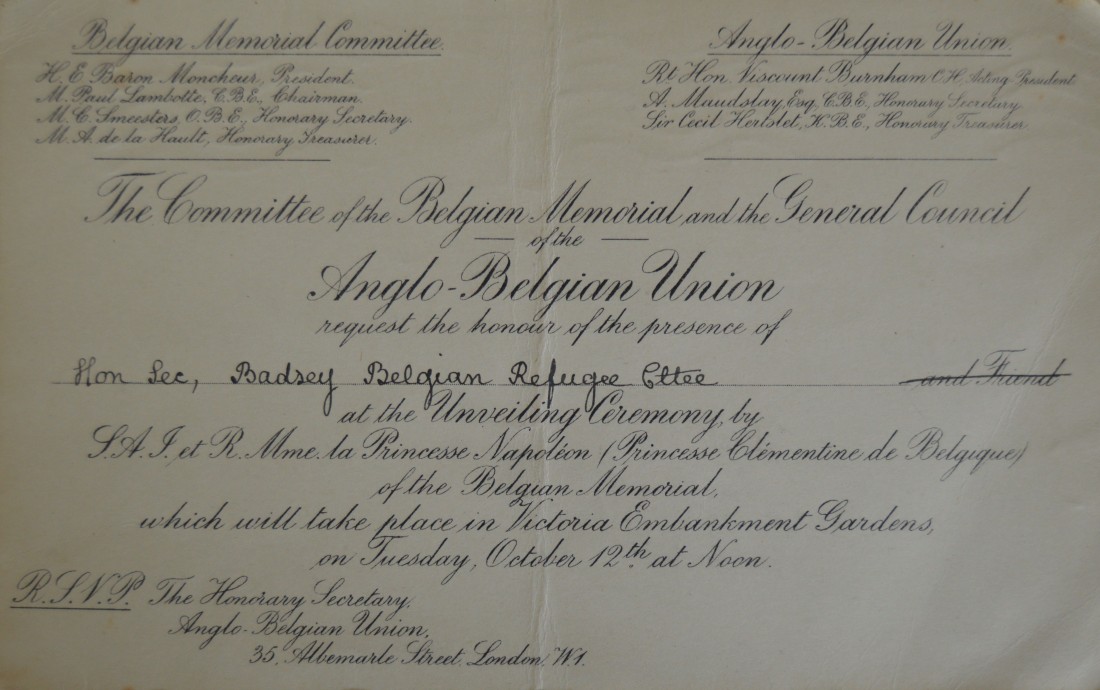 Belgian Memorial Committee.
H. E. Baron Moncheur, President.
M. Paul Lambotte, C.B.E., Chairman.
M. C. Smeesters, O.B.E., Honorary Secretary.
M. A. de la Hault, Honorary Treasurer.
Anglo-Belgian Union.
Rt Hon. Viscount Burnham C.H. Acting President
A. Maudslay, Esq, C.B.E., Honorary Secretary
Sir Cecil Hertslet, K.B.E., Honorary Treasurer.
The Committee of the Belgian Memorial and the General Council
of the
Anglo-Belgian Union
request the honour of the presence of
Hon Sec, Badsey Belgian Refugee Cttee and Friend
at the Unveiling Ceremony, by
S.A.I. et R. Mme. la Princesse Napoléon (Princesse Clémentine de Belgique)
of the Belgian Memorial,
which will take place in Victoria Embankment Gardens,
on Tuesday, October 12th at Noon.
R.S.V.P. The Honorary Secretary,
Anglo-Belgian Union,
35, Albemarle Street, London, W.1.